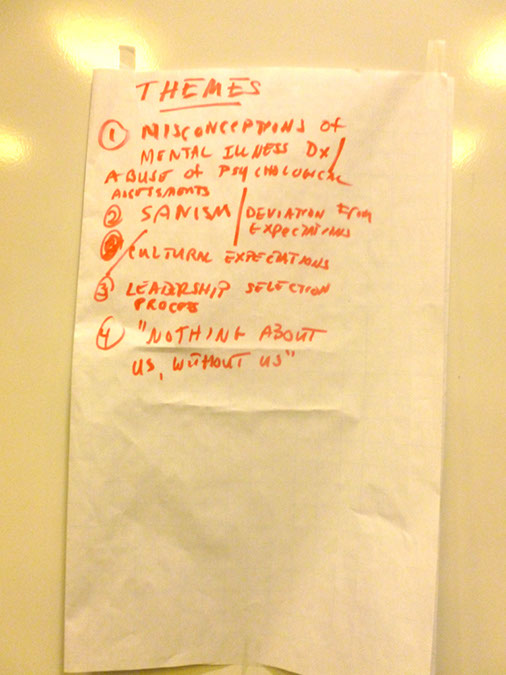 THEMES
① MISCONCEPTIONS of
MENTAL ILLNESS Dx/
ABUSE of PSYCHOLOGICAL
ASSESSMENTS
② SANISM / DEVIATION FROM
EXPECTATIONS
/ CULTURAL EXPECTATIONS
③ LEADERSHIP SELECTION
PROCESS
④ "NOTHING ABOUT
US, WITHOUT US"